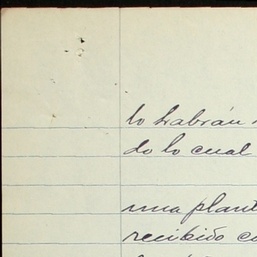 lo habrán
do lo cual
una plant
recibido co